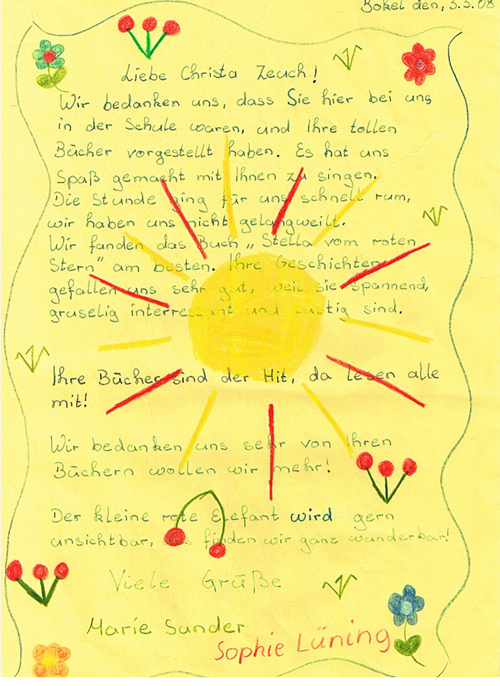 Bokel den, 5.5.08
Liebe Christa Zeuch!
Wir bedanken uns, dass Sie hier bei uns
in der Schule waren, und Ihre tollen
Bücher vorgestellt haben. Es hat uns
Spaß gemacht mit Ihnen zu singen.
Die Stunde ging für uns schnell rum,
wir haben uns nicht gelangweilt.
Wir fanden das Buch „Stella vom roten
Stern" am besten. Ihre Geschichten
gefallen uns sehr gut, weil sie spannend,
gruselig interressant und lustig sind.
Ihre Bücher sind der Hit, da lesen alle
mit!
Wir bedanken uns sehr von Ihren
Büchern wollen wir mehr!
Der kleine rote Elefant wird gern
unsichtbar, das finden wir ganz wunderbar!
Viele Grüße
Marie Sander
Sophie Lüning